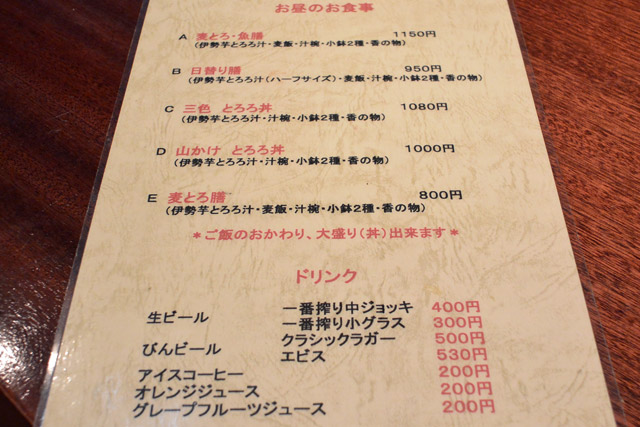 お昼のお食事
A 麦とろ・魚膳 1150円
(伊勢芋とろろ汁・麦飯・汁椀・小鉢2種・香の物)
B 日替り膳 950円
(伊勢芋とろろ汁(ハーフサイズ)・麦飯・汁椀・小鉢2種・香の物)
C 三色 とろろ丼 1080円
(伊勢芋とろろ汁・汁椀・小鉢2種・香の物)
D 山かけ とろろ丼 1000円
(伊勢芋とろろ汁・汁椀・小鉢2種・香の物)
E 麦とろ膳 800円
(伊勢芋とろろ汁・麦飯・汁椀・小鉢2種・香の物)
*ご飯のおかわり、大盛り(丼)出来ます*
ドリンク
生ビール 一番搾り中ジョッキ 400円
一番搾り小グラス 300円
びんビール クラシックラガー 500円
エビス 530円
アイスコーヒー 200円
オレンジジュース 200円
グレープフルーツジュース 200円